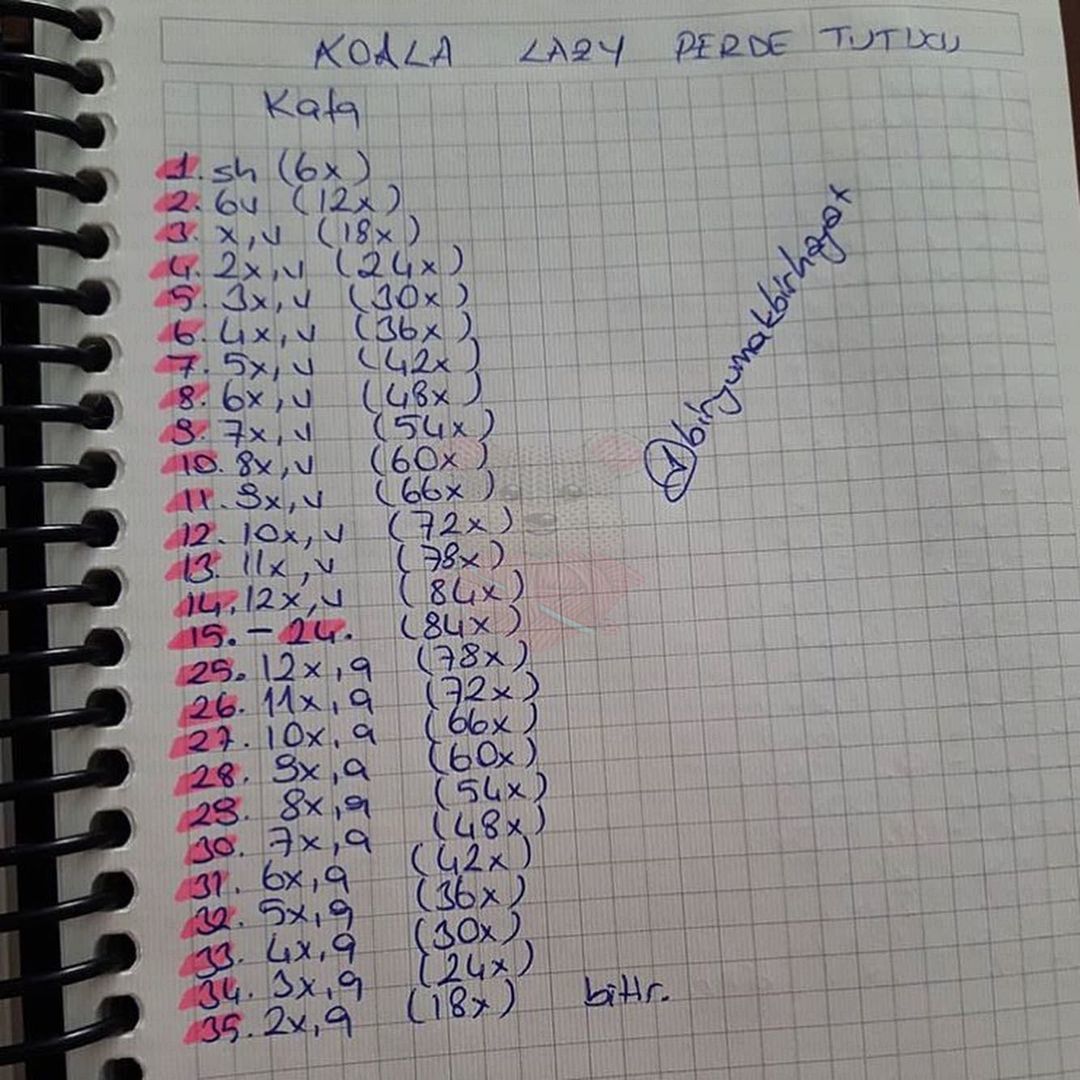 KOALA LAZY PERDE TUTUCU
Kafa
1. sh (6x)
2. 6v (12x)
3. x,v (18x)
4. 2x,v (24x)
5. 3x,v (30x)
6. 4x,v (36x)
7. 5x,v (42x)
8. 6x,v (48x)
9. 7x,v (54x)
10. 8x,v (60x)
11. 9x,v (66x)
12. 10x,v (72x)
13. 11x,v (78x)
14. 12x,v (84x)
15. - 24. (84x)
25. 12x,a (78x)
26. 11x,a (72x)
27. 10x,a (66x)
28. 9x,a (60x)
29. 8x,a (54x)
30. 7x,a (48x)
31. 6x,a (42x)
32. 5x,a (36x)
33. 4x,a (30x)
34. 3x,a (24x)
35. 2x,a (18x) bitir.
biryumakbirhayat